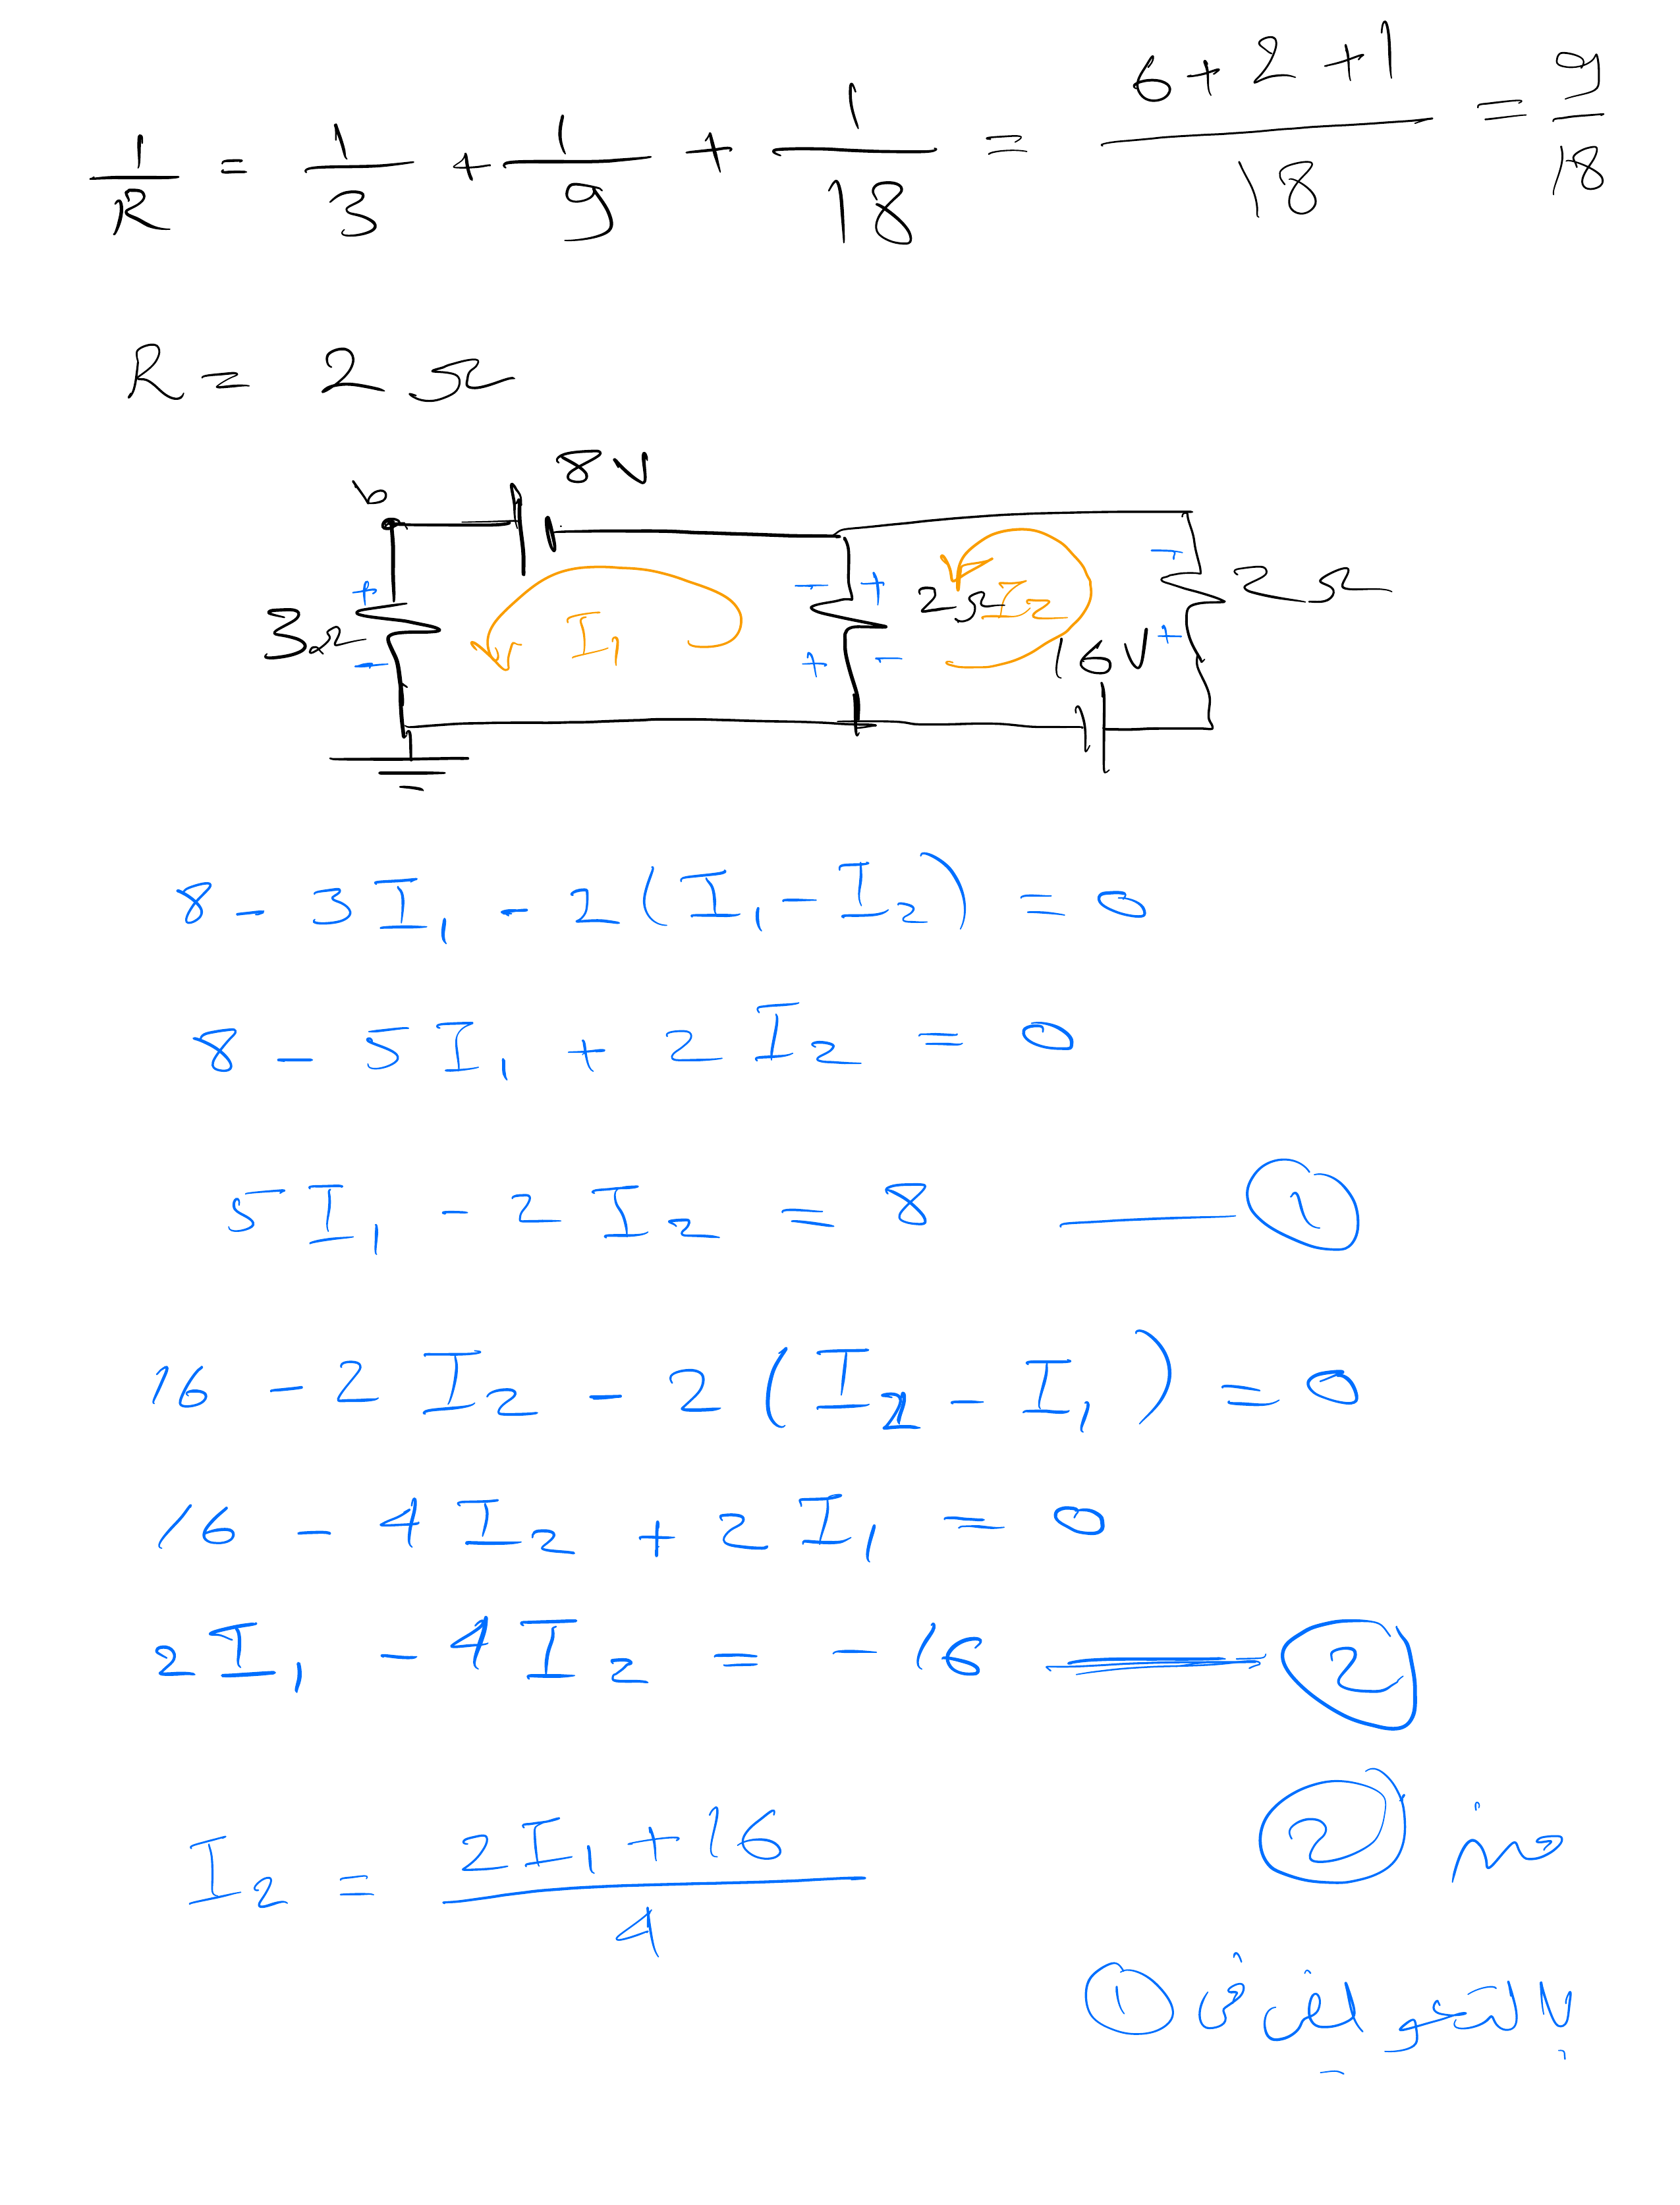 1/R = 1/3 + 1/9 + 1/18 = (6+2+1)/18 = 9/18
R = 2 Ω
b 8V
3Ω + - I₁ - + + - 2Ω I₂ 16V - + 2Ω
8 - 3I₁ - 2(I₁ - I₂) = 0
8 - 5I₁ + 2I₂ = 0
5I₁ - 2I₂ = 8 —— ①
16 - 2I₂ - 2(I₂ - I₁) = 0
16 - 4I₂ + 2I₁ = 0
2I₁ - 4I₂ = -16 —— ②
من ②
I₂ = (2I₁ + 16)/4
بالتعويض في ①